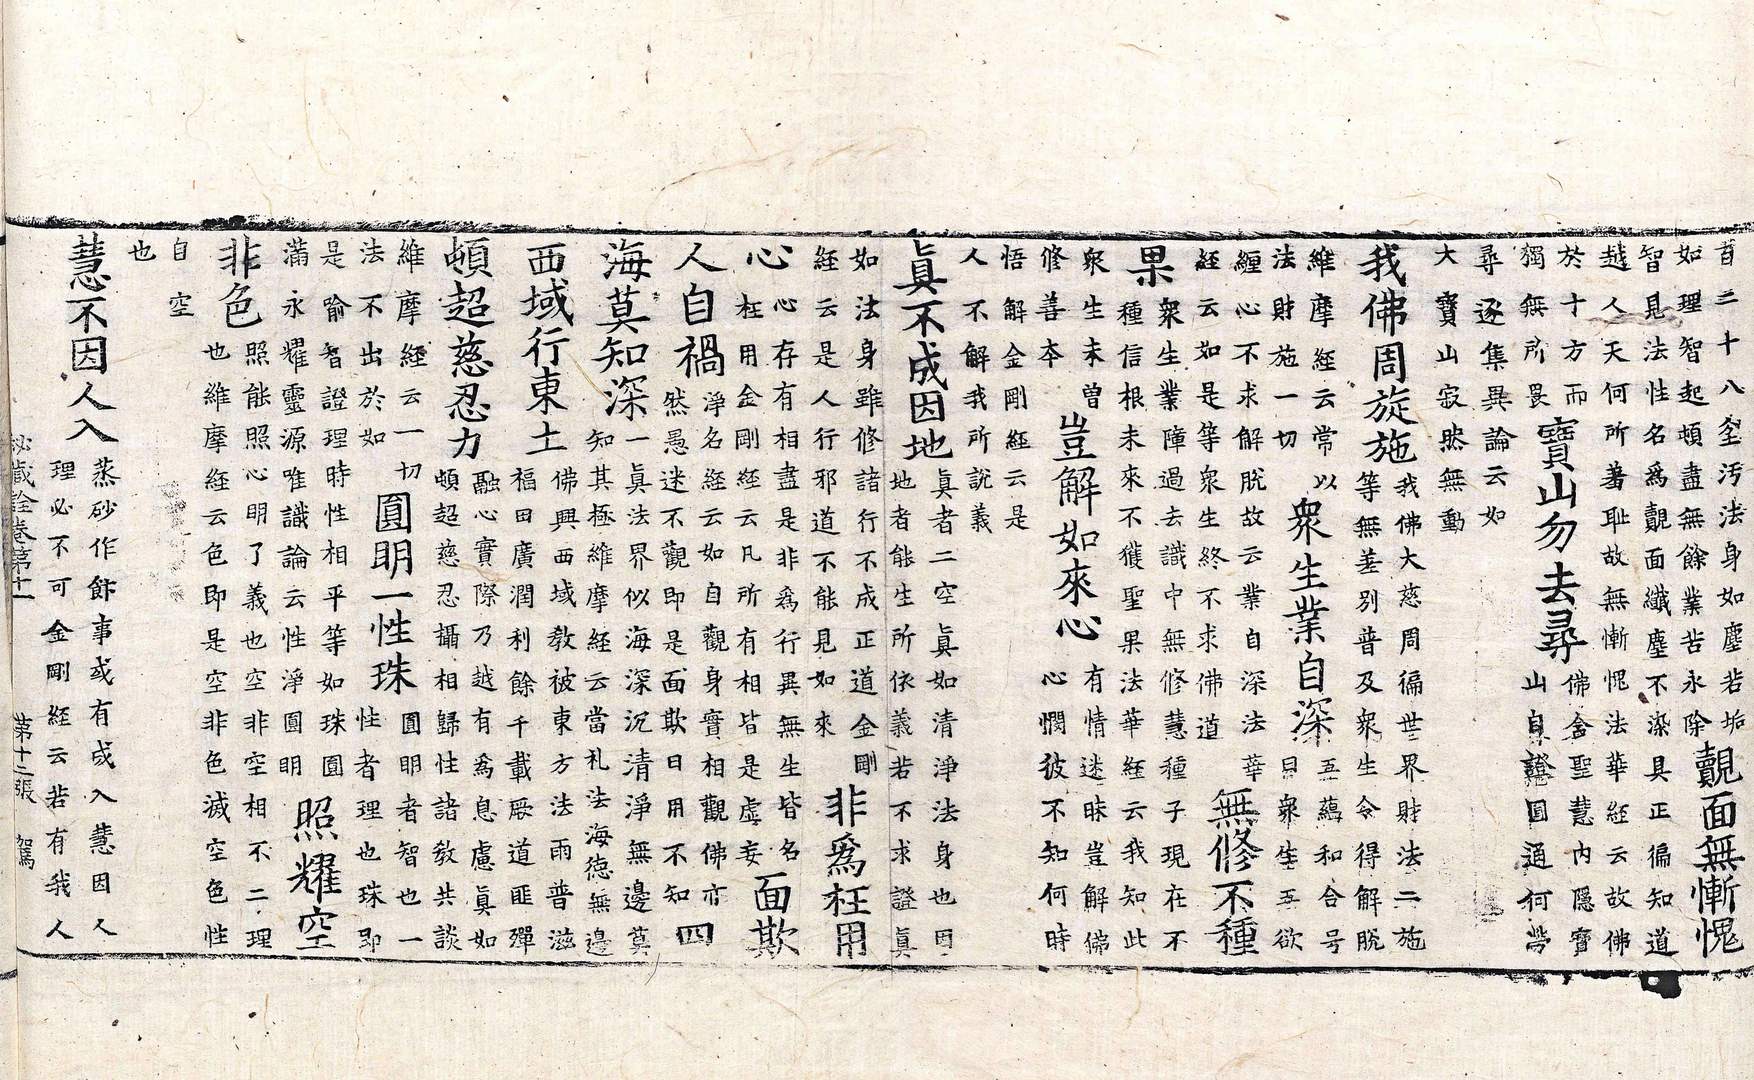 百三十八全汚法身如塵若垢
如理智起頓盡無餘業苦永除
覿面無慚愧
智見法性名爲覿面纖塵不染具正徧知道
越人天何所著恥故無慚愧法華經云故佛
於十方而
獨無所畏
寶山勿去尋
佛舍聖慧內隱寶
山自證圓通何勞
尋逐集異論云如
大寶山寂然無動
我佛周旋施
我佛大慈周徧世界財法二施
等無差別普及衆生令得解脫
維摩經云常以
法財施一切
衆生業自深
五蘊和合号
曰衆生五欲
纏心不求解脫故云業自深法華
經云如是等衆生終不求佛道
無修不種
果
衆生業障過去識中無修慧種子現在不
種信根未來不獲聖果法華經云我知此
衆生未曾
修善本
豈解如來心
有情迷昧豈解佛
心憫彼不知何時
悟解金剛經云是
人不解我所說義
眞不成因地
眞者二空眞如清淨法身也因
地者能生所依義若不求證眞
如法身雖修諸行不成正道金剛
經云是人行邪道不能見如來
非爲枉用
心
心存有相盡是非爲行異無生皆名
枉用金剛經云凡所有相皆是虛妄
面欺
人自禍
淨名經云如自觀身實相觀佛亦
然愚迷不觀即是面欺日用不知
四
海莫知深
一眞法界似海深沉清淨無邊莫
知其極維摩經云當礼法海德無邊
西域行東土
佛興西域敎被東方法雨普滋
福田廣潤利餘千載厥道匪殫
頓超慈忍力
融心實際乃越有爲息慮眞如
頓超慈忍攝相歸性諸敎共談
維摩經云一切
法不出於如
圓明一性珠
圓明者智也一
性者理也珠即
是喻智證理時性相平等如珠圓
滿永耀靈源唯識論云性淨圓明
照耀空
非色
照能照心明了義也空非空相不二理
也維摩經云色即是空非色滅空色性
自空
也
慧不因人入
蒸砂作餅事或有成入慧因人
理必不可金剛經云若有我人
秘藏詮卷第十一 第十二張 駕